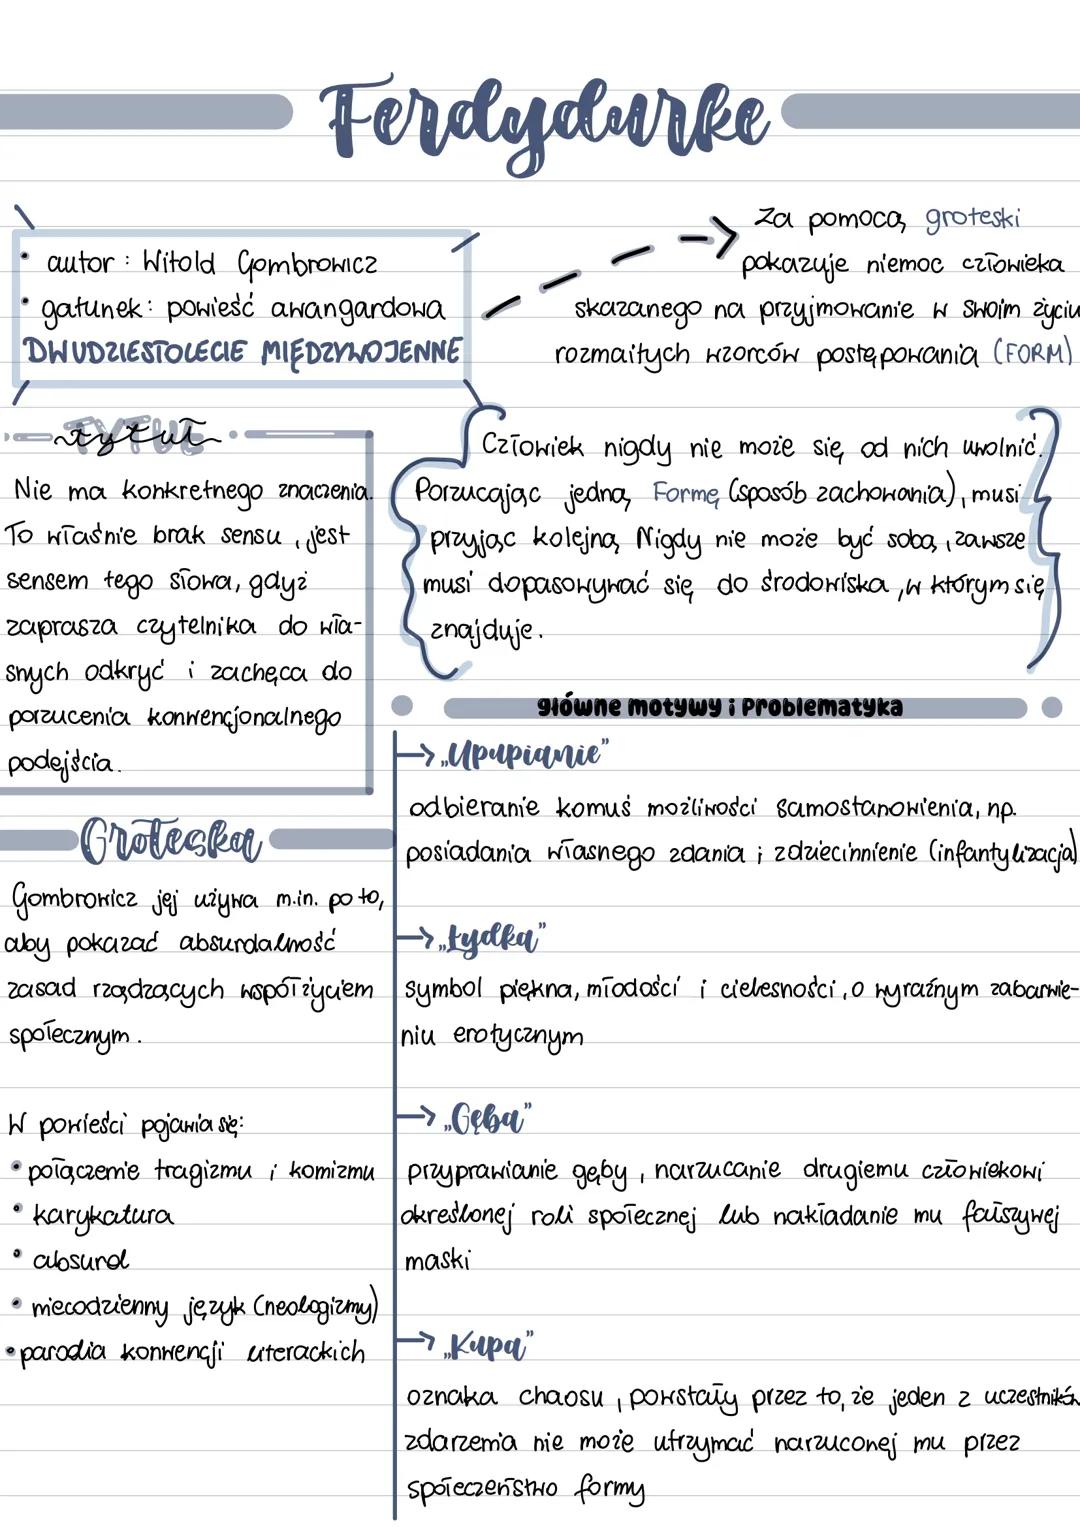 Ferdydurke
• autor : Witold Gombrowicz
• gatunek: powieść awangardowa
DWUDZIESTOLECIE MIĘDZYWOJENNE
Za pomocą groteski
pokazuje niemoc człowieka
skazanego na przyjmowanie w swoim życiu
rozmaitych wzorców postępowania (FORM)
tytuł
Nie ma konkretnego znaczenia.
To właśnie brak sensu, jest
sensem tego słowa, gdyż
zaprasza czytelnika do wła-
snych odkryć i zachęca do
porzucenia konwencjonalnego
podejścia.
Człowiek nigdy nie może się od nich uwolnić.
Porzucając jedną Formę (sposób zachowania), musi
przyjąć kolejną. Nigdy nie może być sobą, zawsze
musi dopasowywać się do środowiska, w którym się
znajduje.
Groteska
Gombrowicz jej używa m.in. po to,
aby pokazać absurdalność
zasad rządzących współżyciem
społecznym.
W powieści pojawia się:
• połączenie tragizmu i komizmu
• karykatura
• absurd
• niecodzienny język (neologizmy)
• parodia konwencji literackich
główne motywy i Problematyka
→ „Upupianie”
odbieranie komuś możliwości samostanowienia, np.
posiadania własnego zdania; zdziecinnienie (infantylizacja)
→ „Łydka”
symbol piękna, młodości i cielesności, o wyraźnym zabarwie-
niu erotycznym
→ „Gęba”
przyprawianie gęby, narzucanie drugiemu człowiekowi
określonej roli społecznej lub nakładanie mu fałszywej
maski
→ „Kupa”
oznaka chaosu, powstały przez to, że jeden z uczestników
zdarzenia nie może utrzymać narzuconej mu przez
społeczeństwo formy